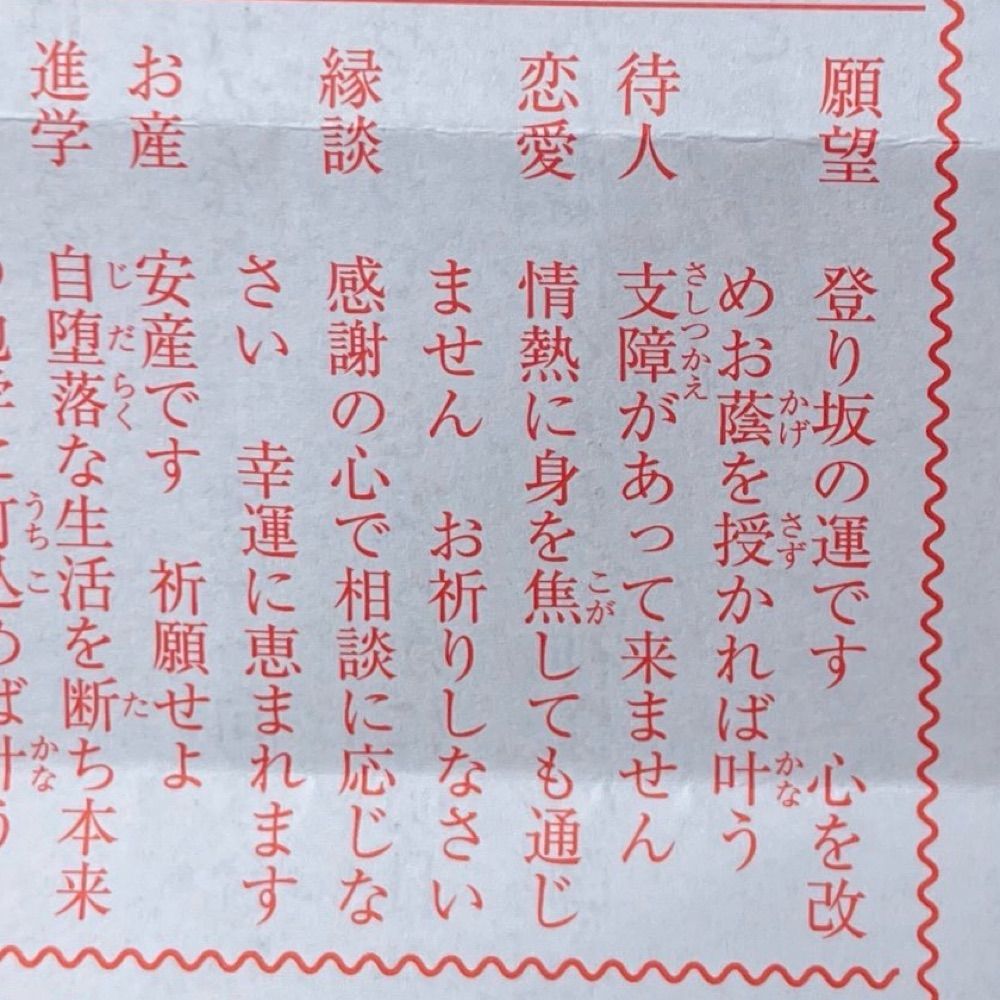 願望 登り坂の運です 心を改
めお蔭を授かれば叶う
待人 支障があって来ません
恋愛 情熱に身を焦しても通じ
ません お祈りしなさい
縁談 感謝の心で相談に応じな
さい 幸運に恵まれます
お産 安産です 祈願せよ
進学 自堕落な生活を断ち本来